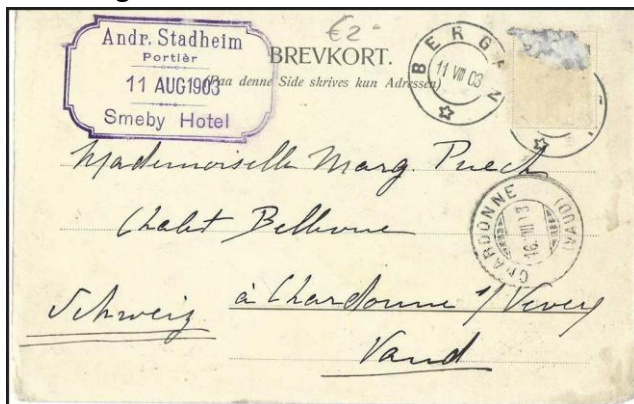 €2-
Andr. Stadheim
Portièr
11 AUG 1903
Smeby Hotel
BREVKORT.
(Paa denne Side skrives kun Adressen)
BERGEN
11 VIII 03
Mademoiselle Marg. Puech
Chalet Bellevue
à Chardonne s/Vevey
Schweiz
Vaud
CHARDONNE (VAUD)
16.VIII.03